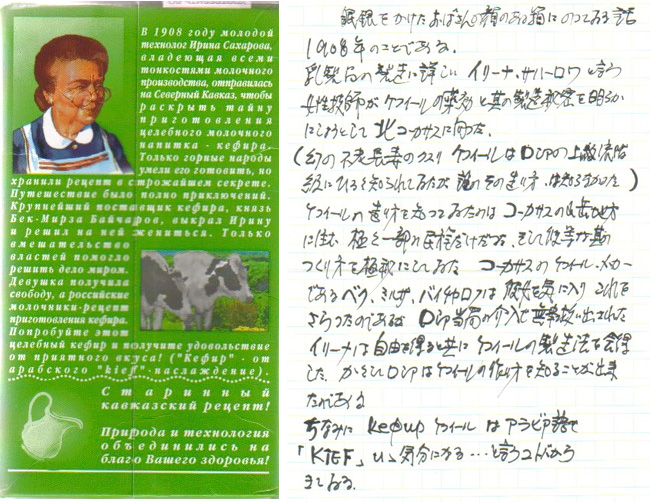 В 1908 году молодой
технолог Ирина Сахарова,
владеющая всеми
тонкостями молочного
производства, отправилась
на Северный Кавказ, чтобы
раскрыть тайну
приготовления
целебного молочного
напитка - кефира.
Только горные народы
умели его готовить, но
хранили рецепт в строжайшем секрете.
Путешествие было полно приключений.
Крупнейший поставщик кефира, князь
Бек-Мирза Байчаров, выкрал Ирину
и решил на ней жениться. Только
вмешательство
властей помогло
решить дело миром.
Девушка получила
свободу, а российские
молочники-рецепт
приготовления кефира.
Попробуйте этот
целебный кефир и получите удовольствие
от приятного вкуса! ("Кефир" - от
арабского "kieff"-наслаждение).
Старинный
кавказский рецепт!
Природа и технология
объединились на
благо Вашего здоровья!
眼鏡をかけたおばさんの顔のある箱にのっている話
1908年のことである.
乳製品の製造に詳しい イリーナ・サハーロワ と言う
女性技師がケフィールの薬効と其の製造秘密を明らか
にしようとして北コーカサスに向った.
(幻の不老長寿のクスリ ケフィールはロシアの上級
ケフィールの造り方を知っているのはコーカサスの山岳地方
に住む, 極く一部の民族だけだった. そして彼等は其の
つくり方を極秘にしていた コーカサスのケフィール・メーカー
であるベク, ミルザ, バイチャロフは彼女を気に入りこれを
さらったのであるが ロシア当局の介入で無事救い出された
イリーナは自由を得ると共にケフィールの製造法を会得
した. かくしてロシアはケフィールの作り方を知ることが出来
たのである
ちなみに кефир ケフィール はアラビア語で
「KIEF」いい気分になる…と言うコトバから
きている.